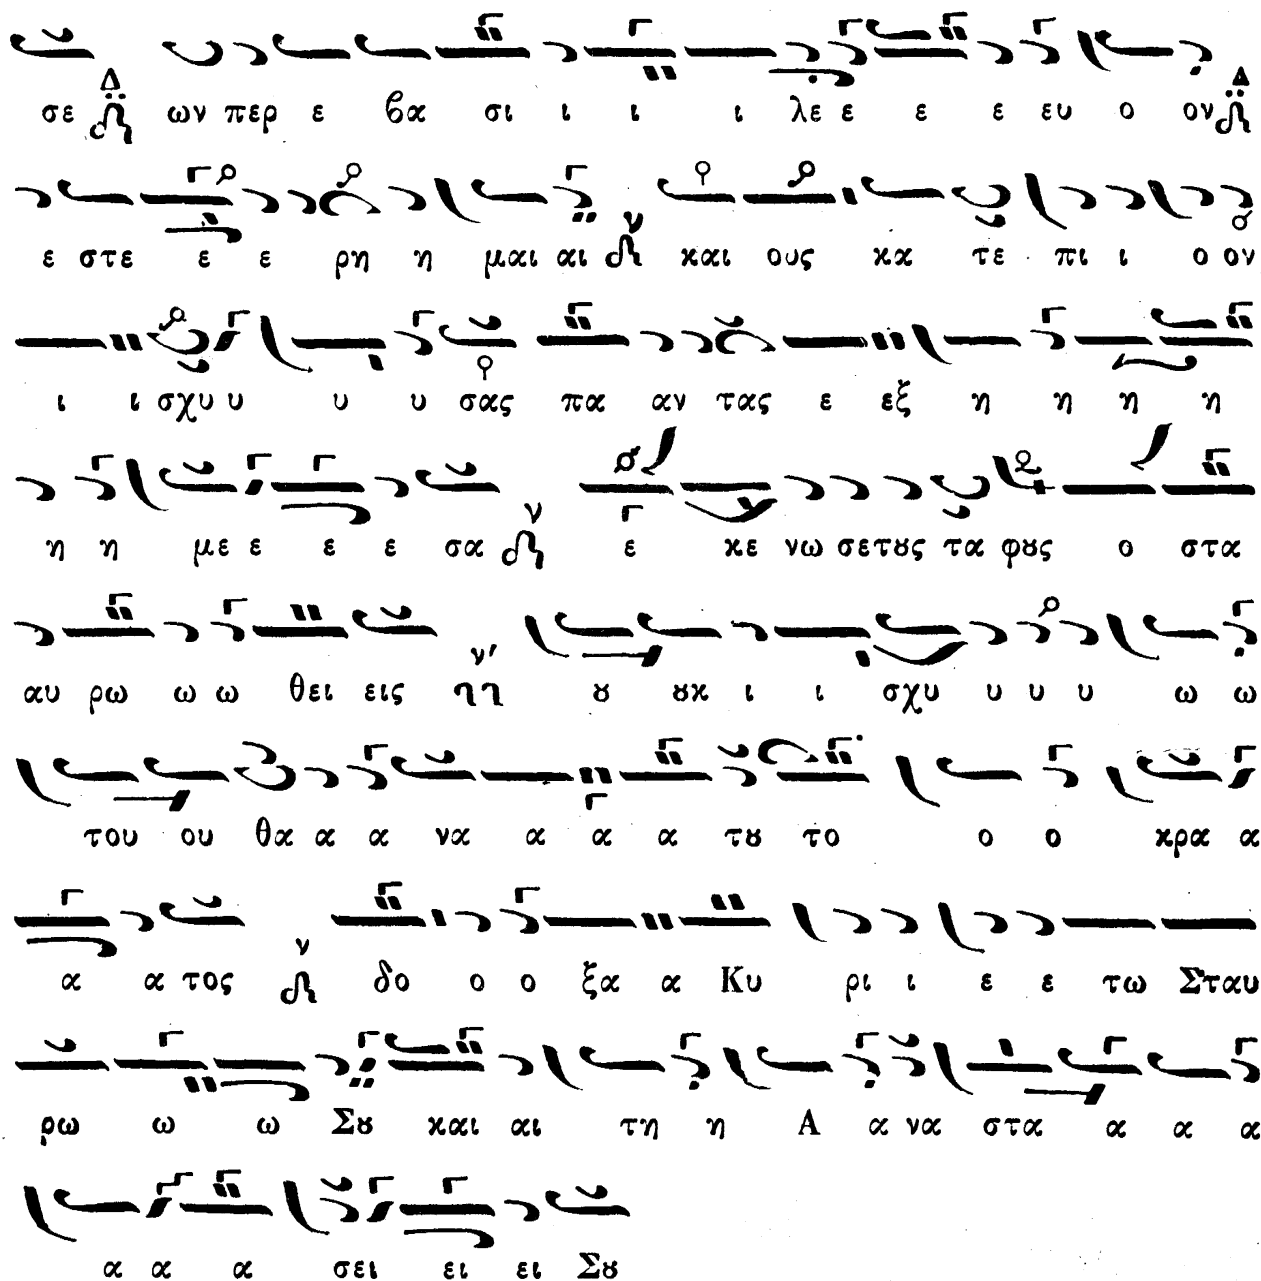 σε Δ ων περ ε ϐα σι ι ι ι λε ε ε ε ευ ο ον Δ
ε στε ε ε ρη η μαι αι ν και ους κα τε πι ι ο ον
ι ι σχυ υ υ υ σας πα αν τας ε εξ η η η η
η η με ε ε ε σα ν ε κε νω σε τȣς τα φȣς ο στα
αυ ρω ω ω θει εις ν′ ȣ ȣκ ι ι σχυ υ υ υ ω ω
του ου θα α α να α α α τȣ το ο ο κρα α
α α τος ν δο ο ο ξα α Κυ ρι ι ε ε τω Σταυ
ρω ω ω Σȣ και αι τη η Α α να στα α α α
α α α σει ει ει Σȣ